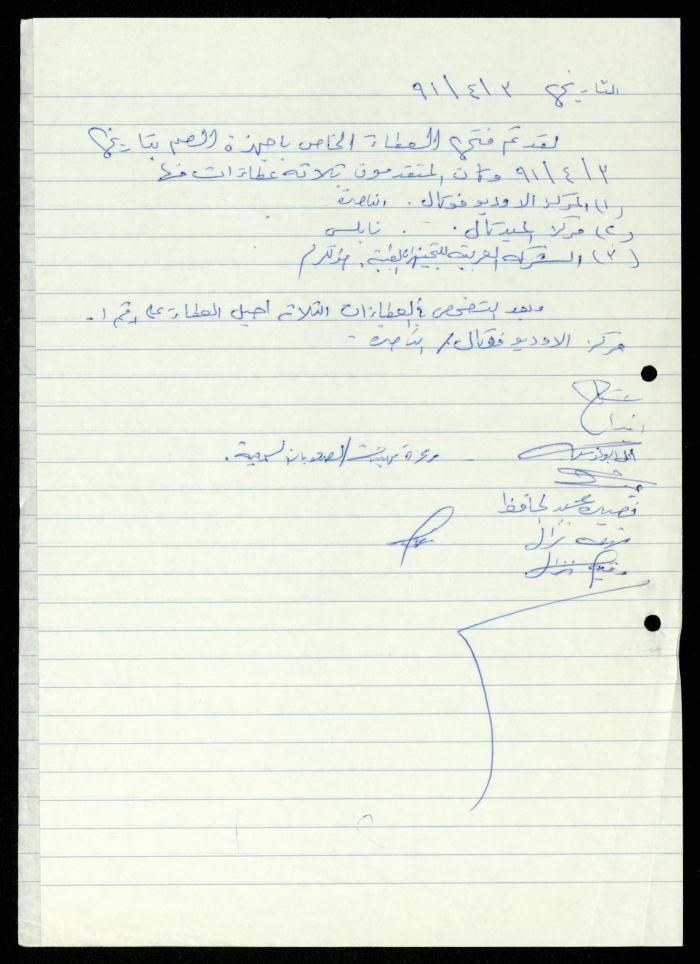 التاريخ ٩١/٤/٣
لقد تم فتح العطاء الخاص باجهزة الصم بتاريخ
٩١/٤/٣ وكان المتقدمون ثلاثة عطاءات منها
(١) المركز الاوديو فوكال . الناصرة
(٢) مركز الميديكال . . نابلس
(٣) الشركة العربية للتجهيزات الطبية
وبعد التفحص بالعطاءات الثلاثة احيل العطاء على رقم ١ -
مركز الاوديو فوكال / الناصرة -
السمعية .
عبد الحافظ
نزال
نزال